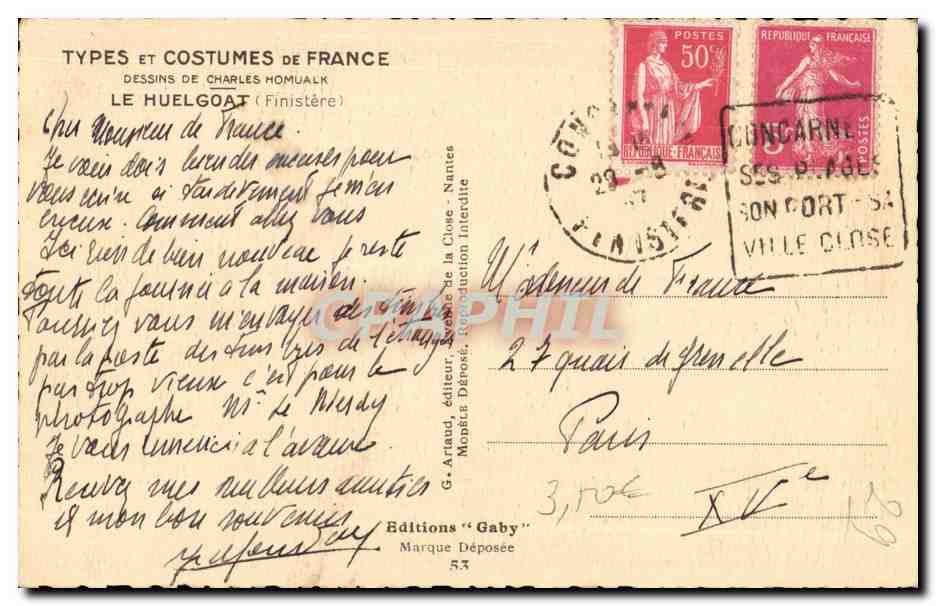 TYPES ET COSTUMES DE FRANCE
DESSINS DE CHARLES HOMUALK
LE HUELGOAT (Finistère)
Cher Monsieur de France.
Je vous dois bien des excuses pour
vous écrire si tardivement
Comment allez vous
Ici rien de bien nouveau je reste
toute la journée à la maison.
vous m'envoyer des timbres
par la poste des timbres de l'étranger
pas trop vieux c'est pour le
photographe Mr Le
Je vous remercie à l'avance.
Recevez mes meilleurs amitiés
et mon bon souvenir
G. Artaud, éditeur, Avenue de la Close - Nantes
MODÈLE DÉPOSÉ. Reproduction Interdite
Editions "Gaby"
Marque Déposée
53
POSTES
50c
REPUBLIQUE-FRANÇAISE
REPUBLIQUE FRANÇAISE
POSTES
CONCARNE
FINISTERE
CONCARNE
SES PLAGES
SON PORT-SA
VILLE CLOSE
de France
27 quai de Grenelle
Paris
XVe
3,50€
CPAPHIL